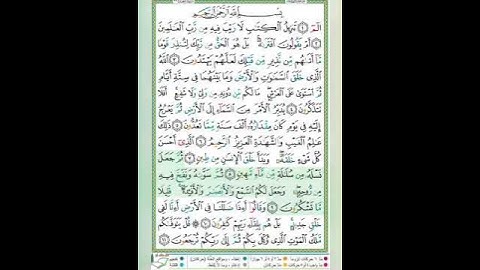 بِسْمِ ٱللَّهِ ٱلرَّحْمَٰنِ ٱلرَّحِيمِ
الٓمٓ ١ تَنزِيلُ ٱلْكِتَٰبِ لَا رَيْبَ فِيهِ مِن رَّبِّ ٱلْعَٰلَمِينَ
٢ أَمْ يَقُولُونَ ٱفْتَرَىٰهُ بَلْ هُوَ ٱلْحَقُّ مِن رَّبِّكَ لِتُنذِرَ قَوْمًا
مَّآ أَتَىٰهُم مِّن نَّذِيرٍ مِّن قَبْلِكَ لَعَلَّهُمْ يَهْتَدُونَ ٣ ٱللَّهُ
ٱلَّذِى خَلَقَ ٱلسَّمَٰوَٰتِ وَٱلْأَرْضَ وَمَا بَيْنَهُمَا فِى سِتَّةِ أَيَّامٍ
ثُمَّ ٱسْتَوَىٰ عَلَى ٱلْعَرْشِ مَا لَكُم مِّن دُونِهِۦ مِن وَلِىٍّ وَلَا شَفِيعٍ أَفَلَا
تَتَذَكَّرُونَ ٤ يُدَبِّرُ ٱلْأَمْرَ مِنَ ٱلسَّمَآءِ إِلَى ٱلْأَرْضِ ثُمَّ يَعْرُجُ
إِلَيْهِ فِى يَوْمٍ كَانَ مِقْدَارُهُۥٓ أَلْفَ سَنَةٍ مِّمَّا تَعُدُّونَ ٥ ذَٰلِكَ
عَٰلِمُ ٱلْغَيْبِ وَٱلشَّهَٰدَةِ ٱلْعَزِيزُ ٱلرَّحِيمُ ٦ ٱلَّذِىٓ أَحْسَنَ
كُلَّ شَىْءٍ خَلَقَهُۥ وَبَدَأَ خَلْقَ ٱلْإِنسَٰنِ مِن طِينٍ ٧ ثُمَّ جَعَلَ
نَسْلَهُۥ مِن سُلَٰلَةٍ مِّن مَّآءٍ مَّهِينٍ ٨ ثُمَّ سَوَّىٰهُ وَنَفَخَ فِيهِ
مِن رُّوحِهِۦ وَجَعَلَ لَكُمُ ٱلسَّمْعَ وَٱلْأَبْصَٰرَ وَٱلْأَفْـِٔدَةَ قَلِيلًا
مَّا تَشْكُرُونَ ٩ وَقَالُوٓا۟ أَءِذَا ضَلَلْنَا فِى ٱلْأَرْضِ أَءِنَّا لَفِى
خَلْقٍ جَدِيدٍ بَلْ هُم بِلِقَآءِ رَبِّهِمْ كَٰفِرُونَ ١٠ قُلْ يَتَوَفَّىٰكُم
مَّلَكُ ٱلْمَوْتِ ٱلَّذِى وُكِّلَ بِكُمْ ثُمَّ إِلَىٰ رَبِّكُمْ تُرْجَعُونَ ١١